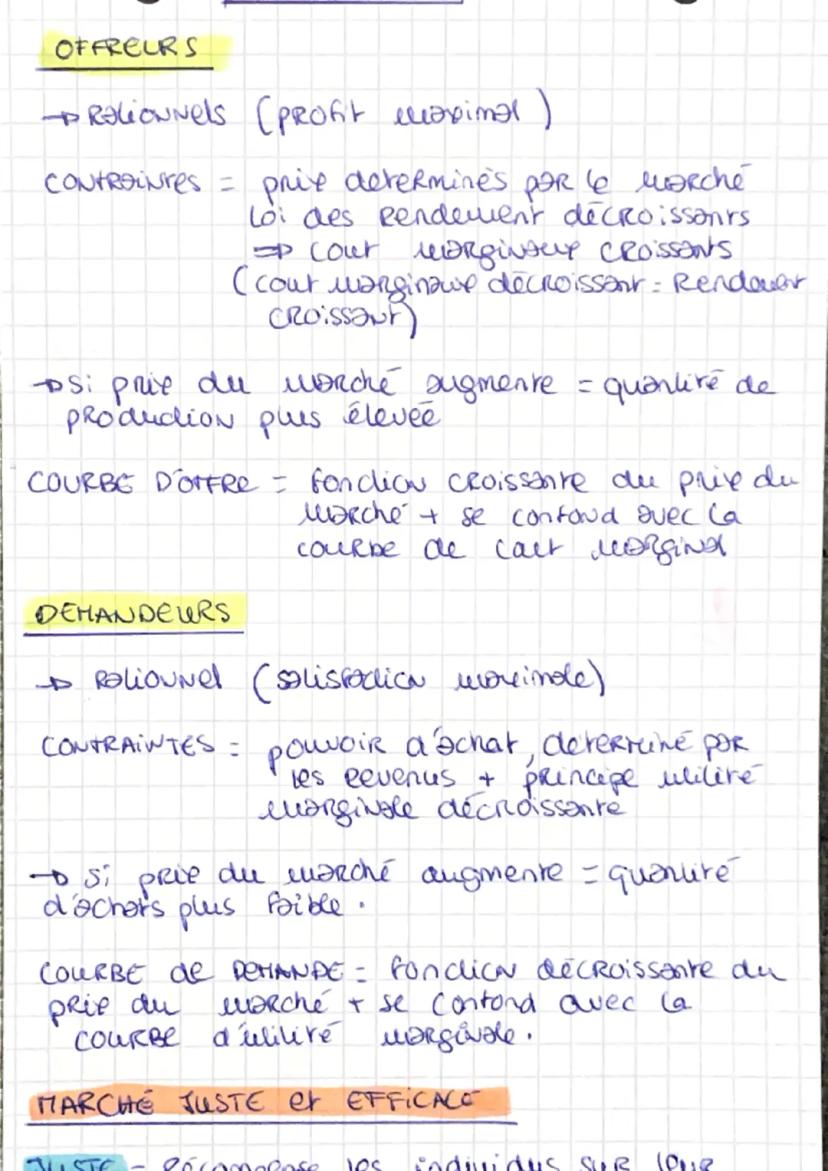 OFFREURS
→ Rationnels (profit maximal)
CONTRAINTES = prix determinés par le marché
Loi des Rendement décroissants
⇒ cout marginaux croissants
(cout marginaux décroissant = Rendement
croissant)
→ si prix du marché augmente = quantité de
production plus élevée
COURBE D'OFFRE = fonction croissante du prix du
marché + se confond avec la
courbe de cout marginal
DEMANDEURS
→ Rationnel (satisfaction maximale)
CONTRAINTES = pouvoir d'achat, déterminé par
les revenus + principe utilité
marginale décroissante
→ si prix du marché augmente = quantité
d'achats plus faible.
COURBE de DEMANDE = fonction décroissante du
prix du marché + se confond avec la
courbe d'utilité marginale.
MARCHÉ JUSTE et EFFICACE
JUSTE = Récompense les individus sur leur